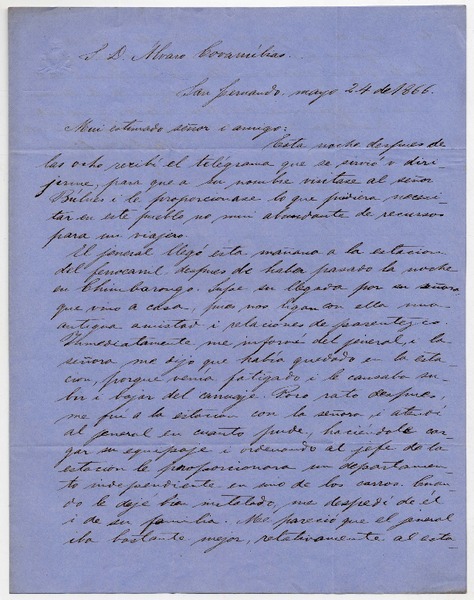 S. D. Álvaro Covarrúbias.
San Fernando, mayo 24 de 1866.
Mui estimado señor i amigo:
Esta noche despues de
las ocho recibí el telégrama que se sirvió diri-
jirme, para que a su nombre visitase al señor
Búlnes i le proporcionase lo que pudiera necesi-
tar en este pueblo no mui abundante de recursos
para un viajero.
El jeneral llegó esta mañana a la estacion
del ferrocarril despues de haber pasado la noche
en Chimbarongo. Supe su llegada por su señora
que vino a casa, pues nos ligan con ella una
antigua amistad i relaciones de parentezco.
Inmediatamente me informé del jeneral, i la
señora me dijo que habia quedado en la esta-
cion, porque venia fatigado i le causaba su-
bir i bajar del carruaje. Poco rato despues,
me fuí a la estacion con la señora, i atendí
al jeneral en cuanto pude, haciéndole car-
gar su equipaje i ordenando al jefe de la
estacion le proporcionara un departamen-
to independiente en uno de los carros. Cuan-
do le dejé bien instalado, me despedí de él
i de su familia. Me pareció que el jeneral
iba bastante mejor, relativamente al esta-